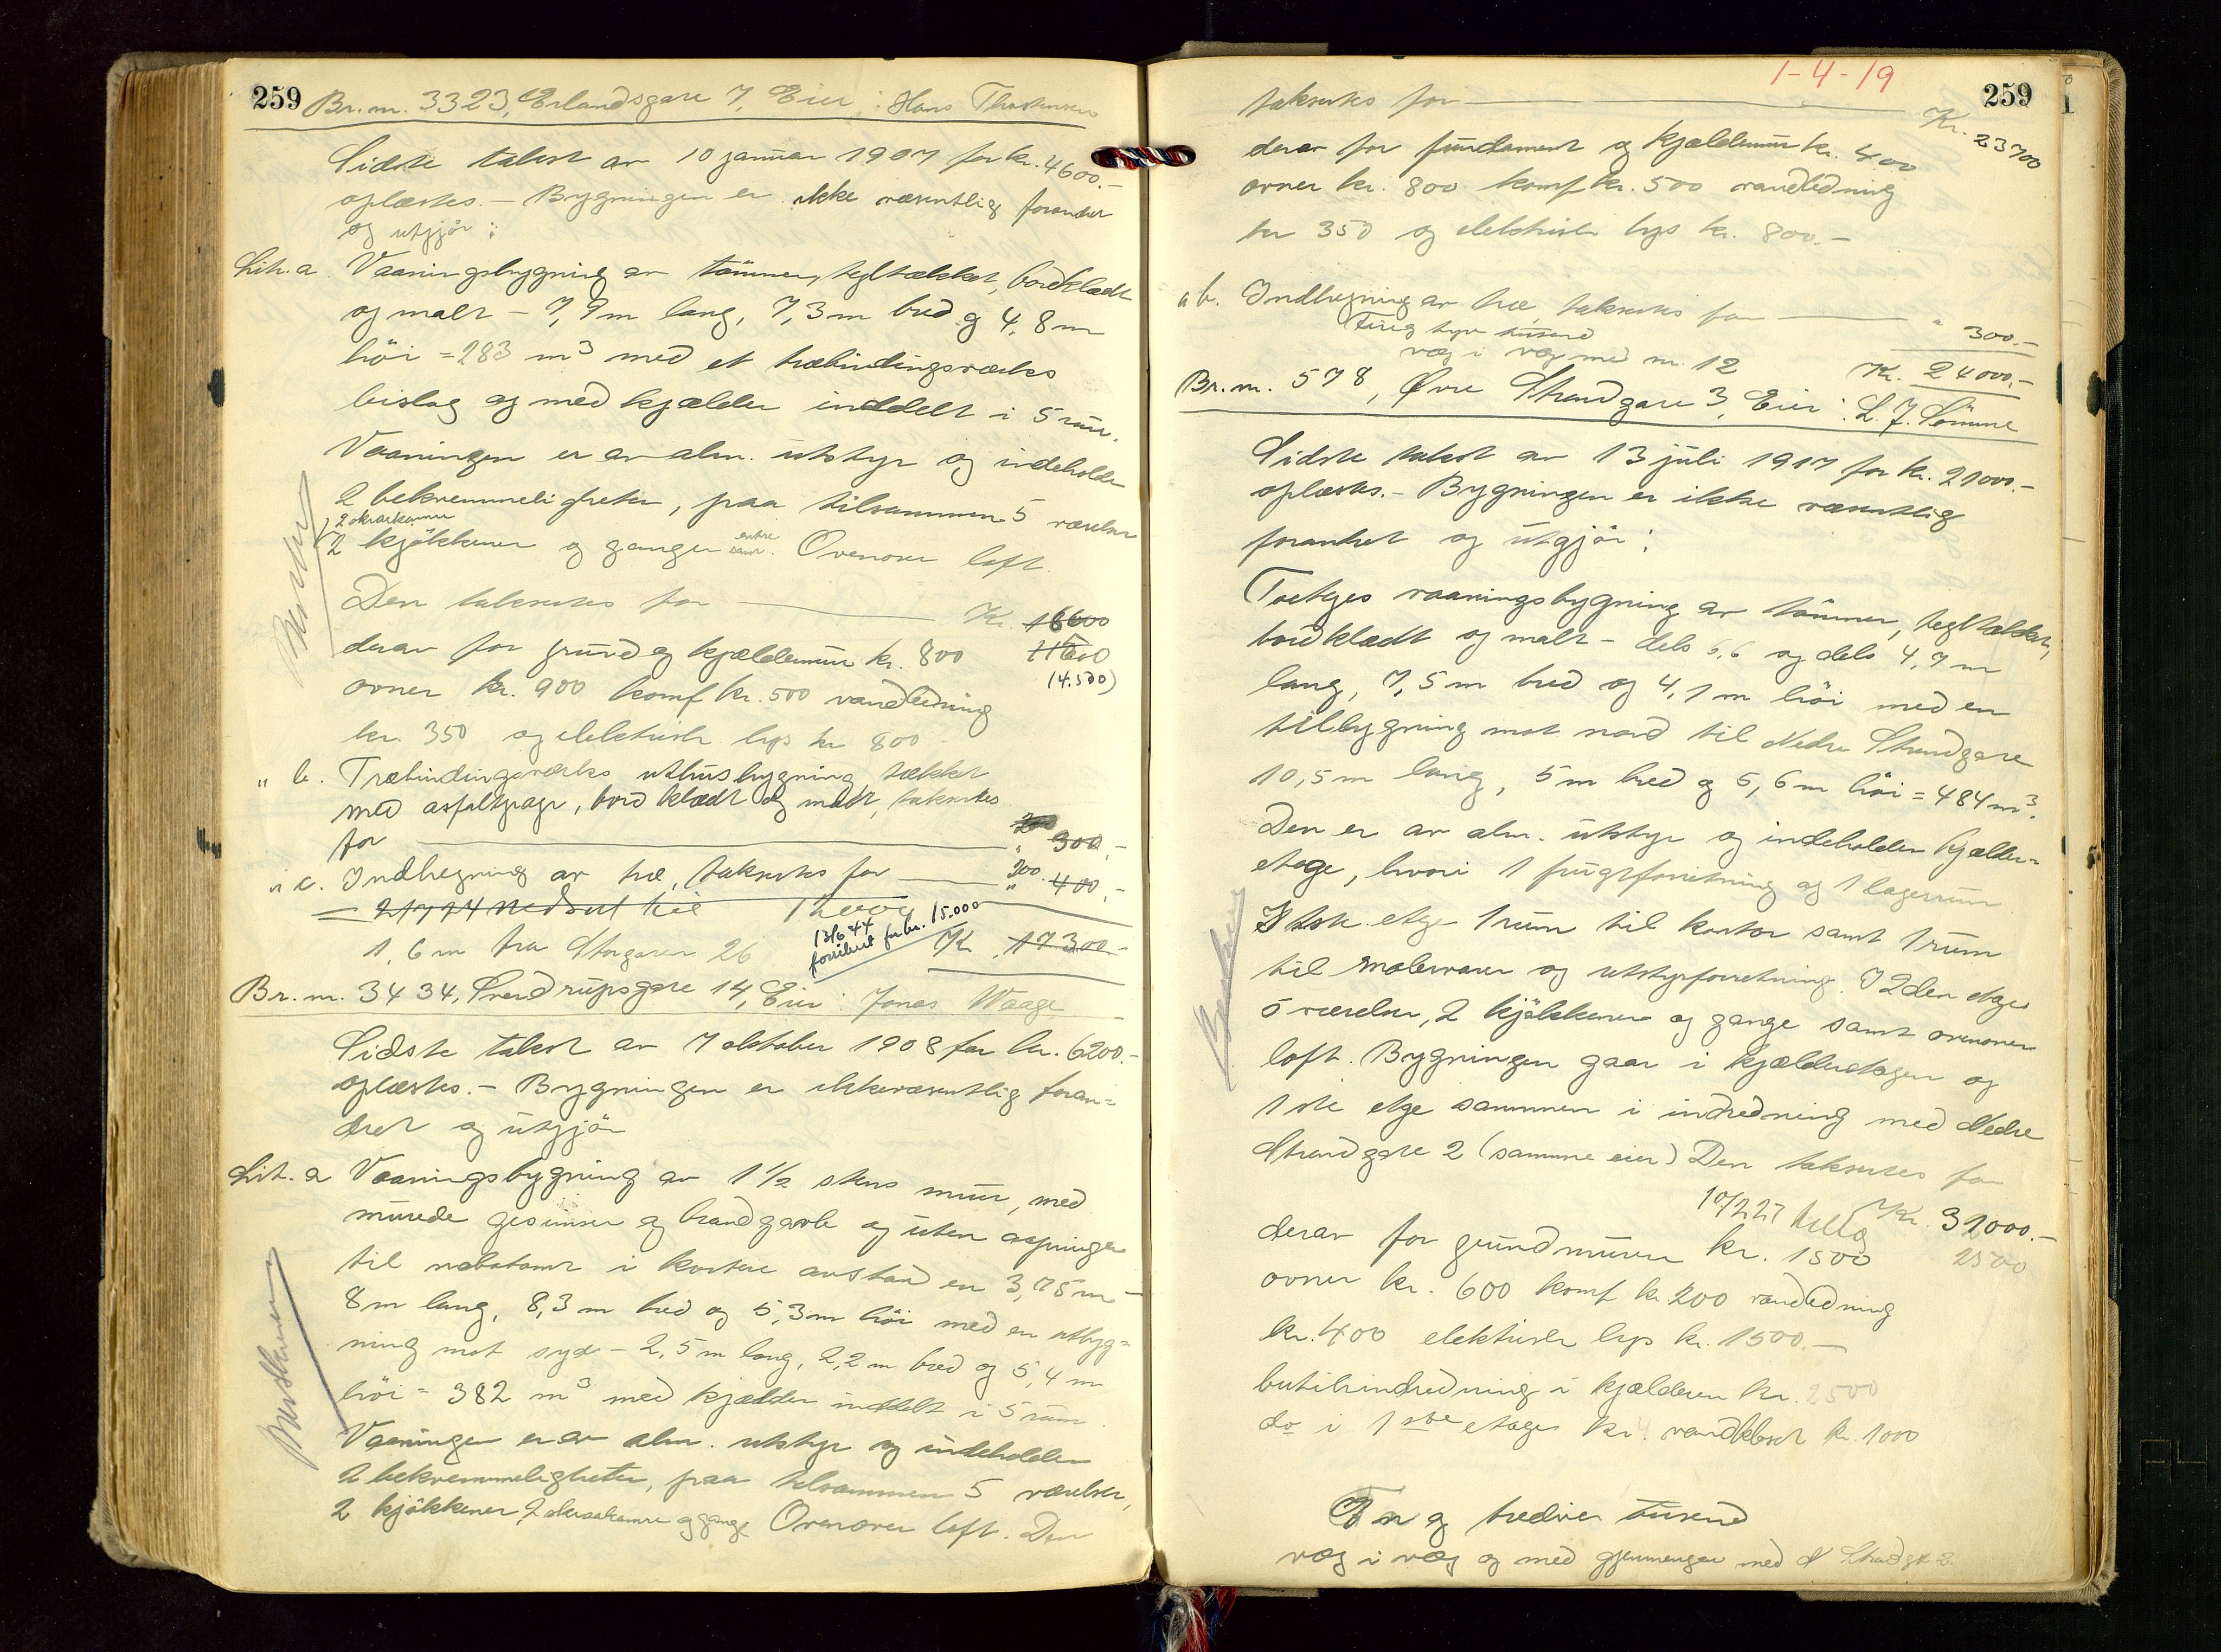 259 Br.nr. 3323, Erlandsgate 7, Eier: Hans Thorkensen
Sidste takst av 10 januar 1907 for kr. 4600.-
oplæstes. - Bygningen er ikke væsentlig forandret
og utgjør:
Lit. a Vaaningsbygning av tømmer, tegltækket, bordklædt
og malt - 7,9 m lang, 7,3 m bred og 4,8 m
høi = 283 m3 med et træbindingsverks
bislag og med kjælder inddelt i 5 rum.
Vaaningen er av alm. utstyr og indeholder
2 bekvemmeligheter, paa tilsammen 5 værelser
, 2 skraakamre
2 kjøkkener og ganger samt entre. Ovenover loft.
Den takseres for Kr. 16600
derav for grund og kjældermur kr. 800 11600
ovner kr. 900 komf kr. 500 vandledning (4.500)
kr. 350 og elektrisk lys kr 800
" b. Træbindingsverks uthusbygning tækket
med asfaltpap, bordklædt og malt, takseres
for " 300.-
" c. Indhegning av træ, takseres for 200. " 400.-
= 21/7 24 nedsat til 12000
13/6 44
forsikret for kr. 15.000
1,6 m fra Storgaten 26 Kr. 17300.-
Br.nr. 3434, Sverdrupsgate 14, Eier: Jonas Waage
Sidste takst av 7 oktober 1908 for kr. 6200.-
oplæstes. - Bygningen er ikke væsentlig foran=
dret og utgjør
Lit. a Vaaningsbygning av 1 1/2 stens mur, med
murede gesimser og brandgavle og uten aapninger
til nabotomt i kortere avstand en 3,75 m -
8 m lang, 8,3 m bred og 5,3 m høi med en utbyg=
ning mot syd - 2,5 m lang, 2,2 m bred og 5,4 m
høi = 382 m3 med kjælder inddelt i 5 rum.
Vaaningen er av alm. utstyr og indeholder
2 bekvemmeligheter, paa tilsammen 5 værelser,
2 kjøkkener, 2 skraakamre og gange Ovenover loft. Den
1-4-19
259
takseres for Kr. 23700
derav for fundament og kjældermur kr. 400
ovner kr. 800 komf kr. 500 vandledning
kr 350 og elektrisk lys kr. 800.-
" b. Indhegning av træ, takseres for " 300.-
Fire og tyve tusend
væg i væg med nr. 12 Kr. 24000.-
Br.nr. 578, Øvre Strandgate 3, Eier: L. J. Sømme
Sidste takst av 13 juli 1917 for kr. 21000.-
oplæstes. - Bygningen er ikke væsentlig
forandret og utgjør:
Toetages vaaningsbygning av tømmer, tegltækket,
bordklædt og malt - dels 6,6 og dels 4,7 m
lang, 7,5 m bred og 4,1 m høi med en
tilbygning mot nord til Nedre Strandgate
10,5 m lang, 5 m bred og 5,6 m høi = 484 m3.
Den er av alm. utstyr og indeholder kjælder=
etage, hvori 1 frugtforretning og 1 lagerrum
I 1ste etage 1 rum til kontor samt 1 rum
til malervarer og utstyrforretning. I 2den etage
5 værelser, 2 kjøkkener og gange samt ovenover
loft. Bygningen gaar i kjælderetagen og
1ste etage sammen i indredning med Nedre
Strandgate 2 (samme eier) Den takseres for
10/2 27 Kr. 31000.-
derav for grundmuren kr. 1500 2500
ovner kr. 600 komf kr. 200 vandledning
kr. 400 elektrisk lys kr. 1500.-
butikindredning i kjælderen kr. 2500
do i 1ste etage kr. vandkloset kr. 1000
En og tredive tusend
væg i væg og med gjennemgang med N Strandgt 2.